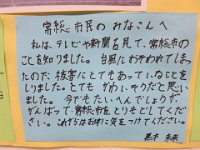 常総市民のみなさんへ
私は、テレビや新聞を見て、常総市の
ことを知りました。台風におそわれてしまっ
たので、被害にとてもあっていることをし
りました。とても かわいそうだと思い
ました。今でもたいへんでしょうが、
がんばって、常総市をとりもどしてくだ
さい。これからはお体に気をつけてください。